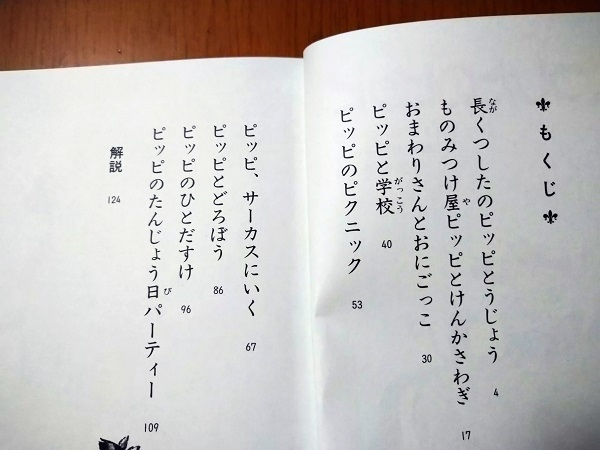 もくじ
長くつしたのピッピとうじょう 4
なが
ものみつけ屋ピッピとけんかさわぎ 17
や
おまわりさんとおにごっこ 30
ピッピと学校 40
がっこう
ピッピのピクニック 53
ピッピ、サーカスにいく 67
ピッピとどろぼう 86
ピッピのひとだすけ 96
ピッピのたんじょう日パーティー 109
び
解説 124